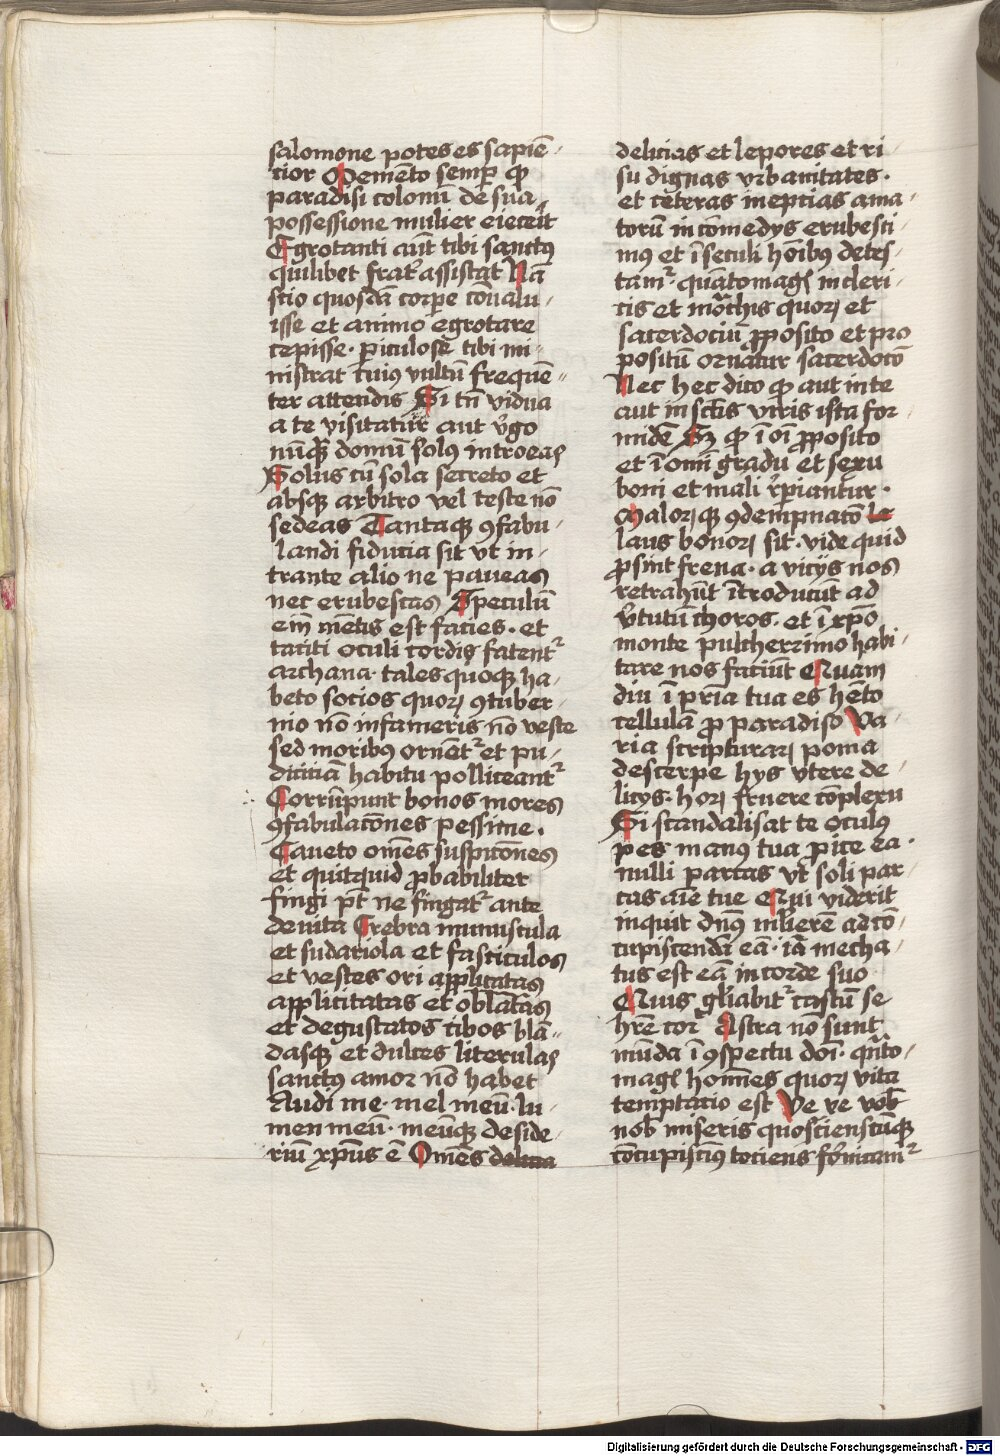 salomone potes es sapiē-
tior Memēto semp̄ ꝙ
paradisi colonū de sua
possessione mulier eiecerit
Egrotanti aūt tibi sanctꝰ
quilibet frat̄ assistat Nā
scio quosdā corpe cōualu-
isse et animo egrotare
cepisse· piculose tibi mi-
nistrat cuiꝰ vultū frequē-
ter attendis Si tn̄ vidua
a te visitatur aut v̓go
nūqꝫ domū solꝰ introeas
Solus cū sola secreto et
absqꝫ arbitro vel teste nō
sedeas Tantaqꝫ ꝯfabu-
landi fiducia sit vt in-
trante alio ne paueas
nec erubescas Speculū
em̄ mētis est facies· et
taciti oculi cordis fatent᷑
archana· tales quoqꝫ ha-
beto socios quoꝝ ꝯtuber-
nio nō infameris nō veste
sed moribꝰ ornēt᷑ et pu-
diciciā habitu polliceant᷑
Corrūpunt bonos mores
ꝯfabulacōnes pessime·
Caueto om̄es suspicōnes
et quitquid ꝓbabiliter
fingi pt̄ ne fingat᷑ ante
deuita Crebra munuscula
et sudariola et fasciculos
et vestes ori applicatas
applicitatas et oblatas
et degustatos cibos blā-
dasqꝫ et dulces literulas
sanctꝰ amor nō habet
Audi me· mel meū· lu-
men meū· meuqꝫ deside-
riū xp̄us ē Om̄es delicia
delicias et lepores et ri-
su dignas vrbanitates·
et ceteras ineptias ama-
torū in comedys erubesci-
mꝰ et ī seculi hoībꝰ detes-
tam᷑· quātomagꝭ in cleri-
cis et mōchis quoꝝ et
sacerdociū ꝓposito et pro
positū ornatur sacerdocō
Nec hec dico ꝙ aut in te
aut in sctīs viris ista for-
midē Sꝫ ꝙ ī oī ꝓposito
et ī omī gradu et sexu
boni et mali rꝑiantur·
Maloꝝqꝫ ꝯdempnatō le
laus bonoꝝ sit· vide quid
ꝓsint frena· a vicijs nos
retrahūt ītroducūt ad
v̓tutū choros· et ī xp̄o
monte pulcherrimo habi-
tare nos faciūt Quam
diu ī pr̄ia tua es hēto
cellulā ꝓ paradiso Va-
ria scripturaꝝ poma
descerpe hys vtere de-
licys· hoꝝ fruere cōplexu
Si scandalisat te oculꝰ
pes manꝰ tua ꝓice ea·
nulli parcas vt soli par-
cas aīe tue Qui viderit
inquit dn̄s mlierē ad cō-
cupiscendā eā· iā mecha-
tus est eā in corde suo
Quis gl̓iabit᷑ castū se
hr̄e cor Astra nō sunt
mūda ī ꝯspectu doī· qn̄to-
magꝭ homines quoꝝ vita
temptacio est Ve ve vob̄
nob̄ miseris quocienscūqꝫ
cōcupiscimꝰ tociens fornicam᷑
Digitalisierung gefördert durch die Deutsche Forschungsgemeinschaft - DFG